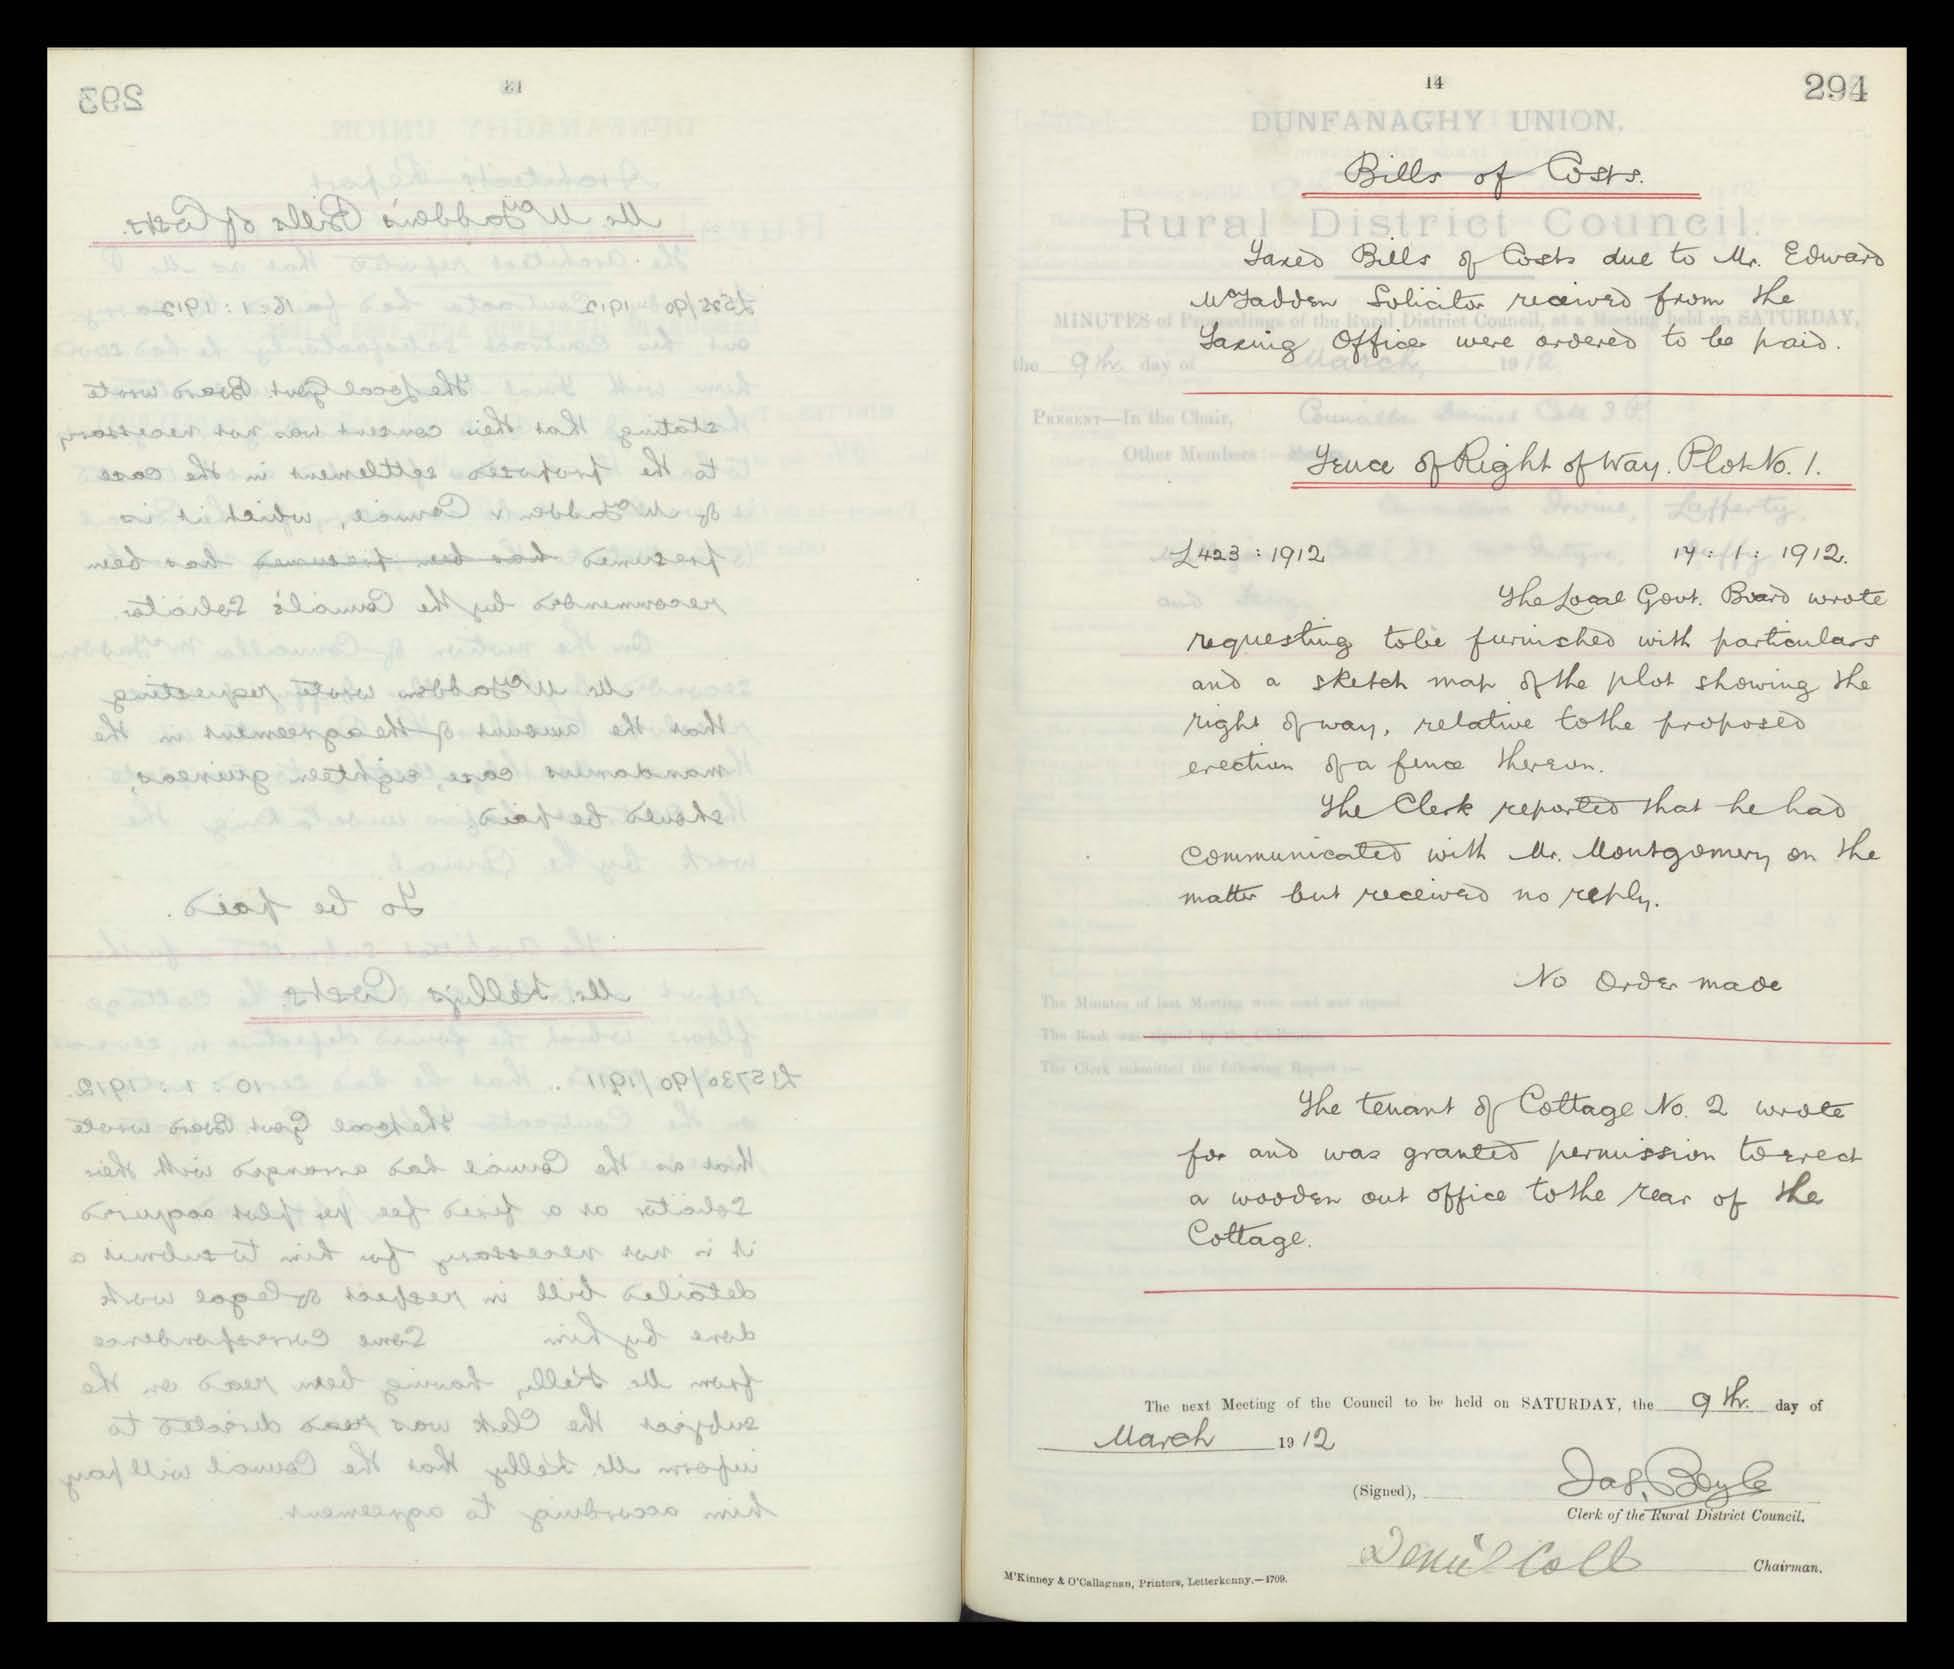 293
13
Mr. McFadden's Bills of Costs.
L525/90/1912 16:1:1912
The Local Govt. Board wrote
stating that their consent was not necessary
to the proposed settlement in the case
of McFadden v Council, which it is
presumed has been presumed has been
recommended by the Council's Solicitor.
Mr. McFadden wrote requesting
that the amount of the agreement in the
mandamus case, eighteen guineas,
should be paid
To be paid.
Mr. Kelly's Costs.
L15730/90/1911. 10:1:1912.
The Local Govt Board wrote
that as the Council had arranged with their
Solicitor as a fixed fee per plot acquired
it is not necessary for him to submit a
detailed bill in respect of legal work
done by him Some correspondence
from Mr. Kelly, having been read on the
subject the Clerk was read directed to
inform Mr. Kelly that the Council will pay
him according to agreement.
14
294
DUNFANAGHY UNION.
Bills of Costs.
Rural District Council.
Taxed Bills of Costs due to Mr. Edward
McFadden Solicitor received from the
MINUTES of Proceedings of the Rural District Council, at a Meeting held on SATURDAY,
Taxing Officer were ordered to be paid.
the 9th. day of March, 1912
PRESENT—In the Chair,
Other Members
Fence of Right of Way. Plot No. 1.
L423:1912 17:1:1912.
The Local Govt. Board wrote
requesting to be furnished with particulars
and a sketch map of the plot showing the
right of way, relative to the proposed
erection of a fence thereon.
The Clerk reported that he had
communicated with Mr. Montgomery on the
matter but received no reply.
No Order made
The Minutes of last Meeting were read and signed
The Clerk submitted the following Report :—
The tenant of Cottage No. 2 wrote
for and was granted permission to erect
a wooden out office to the rear of the
Cottage.
The next Meeting of the Council to be held on SATURDAY, the 9th. day of
March 1912
(Signed), Jas. Boyle
Clerk of the Rural District Council.
Daniel Coll Chairman.
M'Kinney & O'Callaghan, Printers, Letterkenny.—1709.